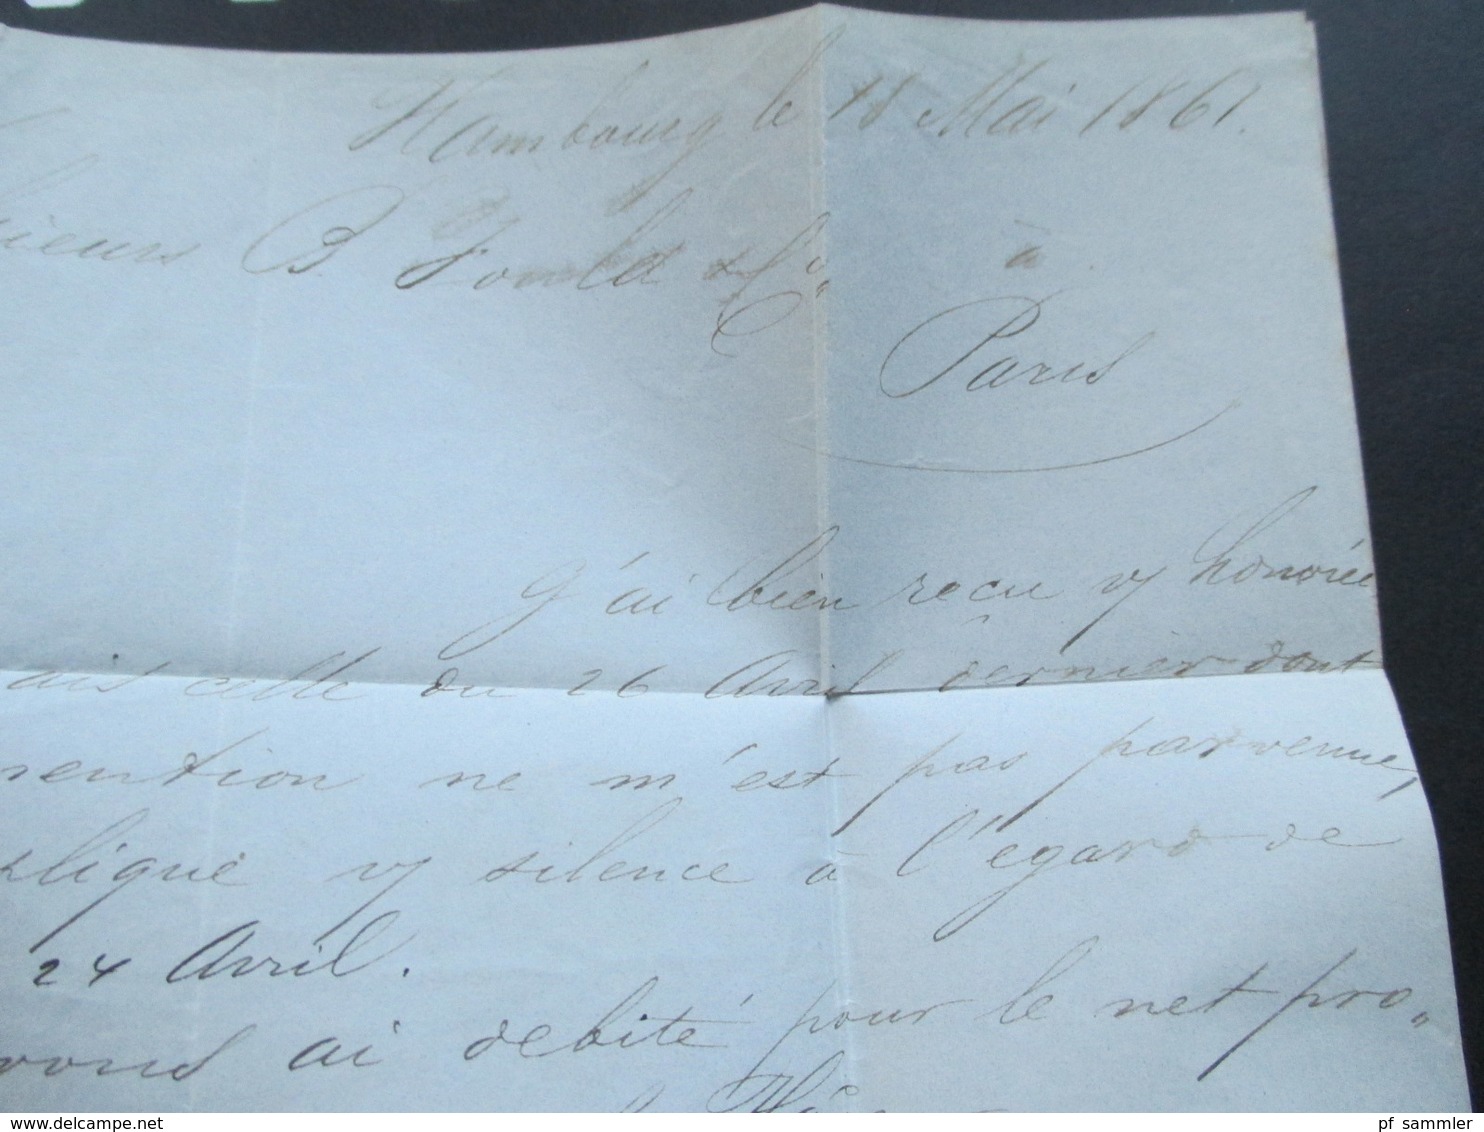 Hambourg le 18 Mai 1861.
sieurs B. Fould & Co,,
à
Paris
J'ai bien reçu vs honorée
ais celle du 26 Avril dernier dont
mention ne m'est pas parvenue,
plique vs silence à l'égard de
24 Avril.
vous ai debité pour le net pro-
pf sammler